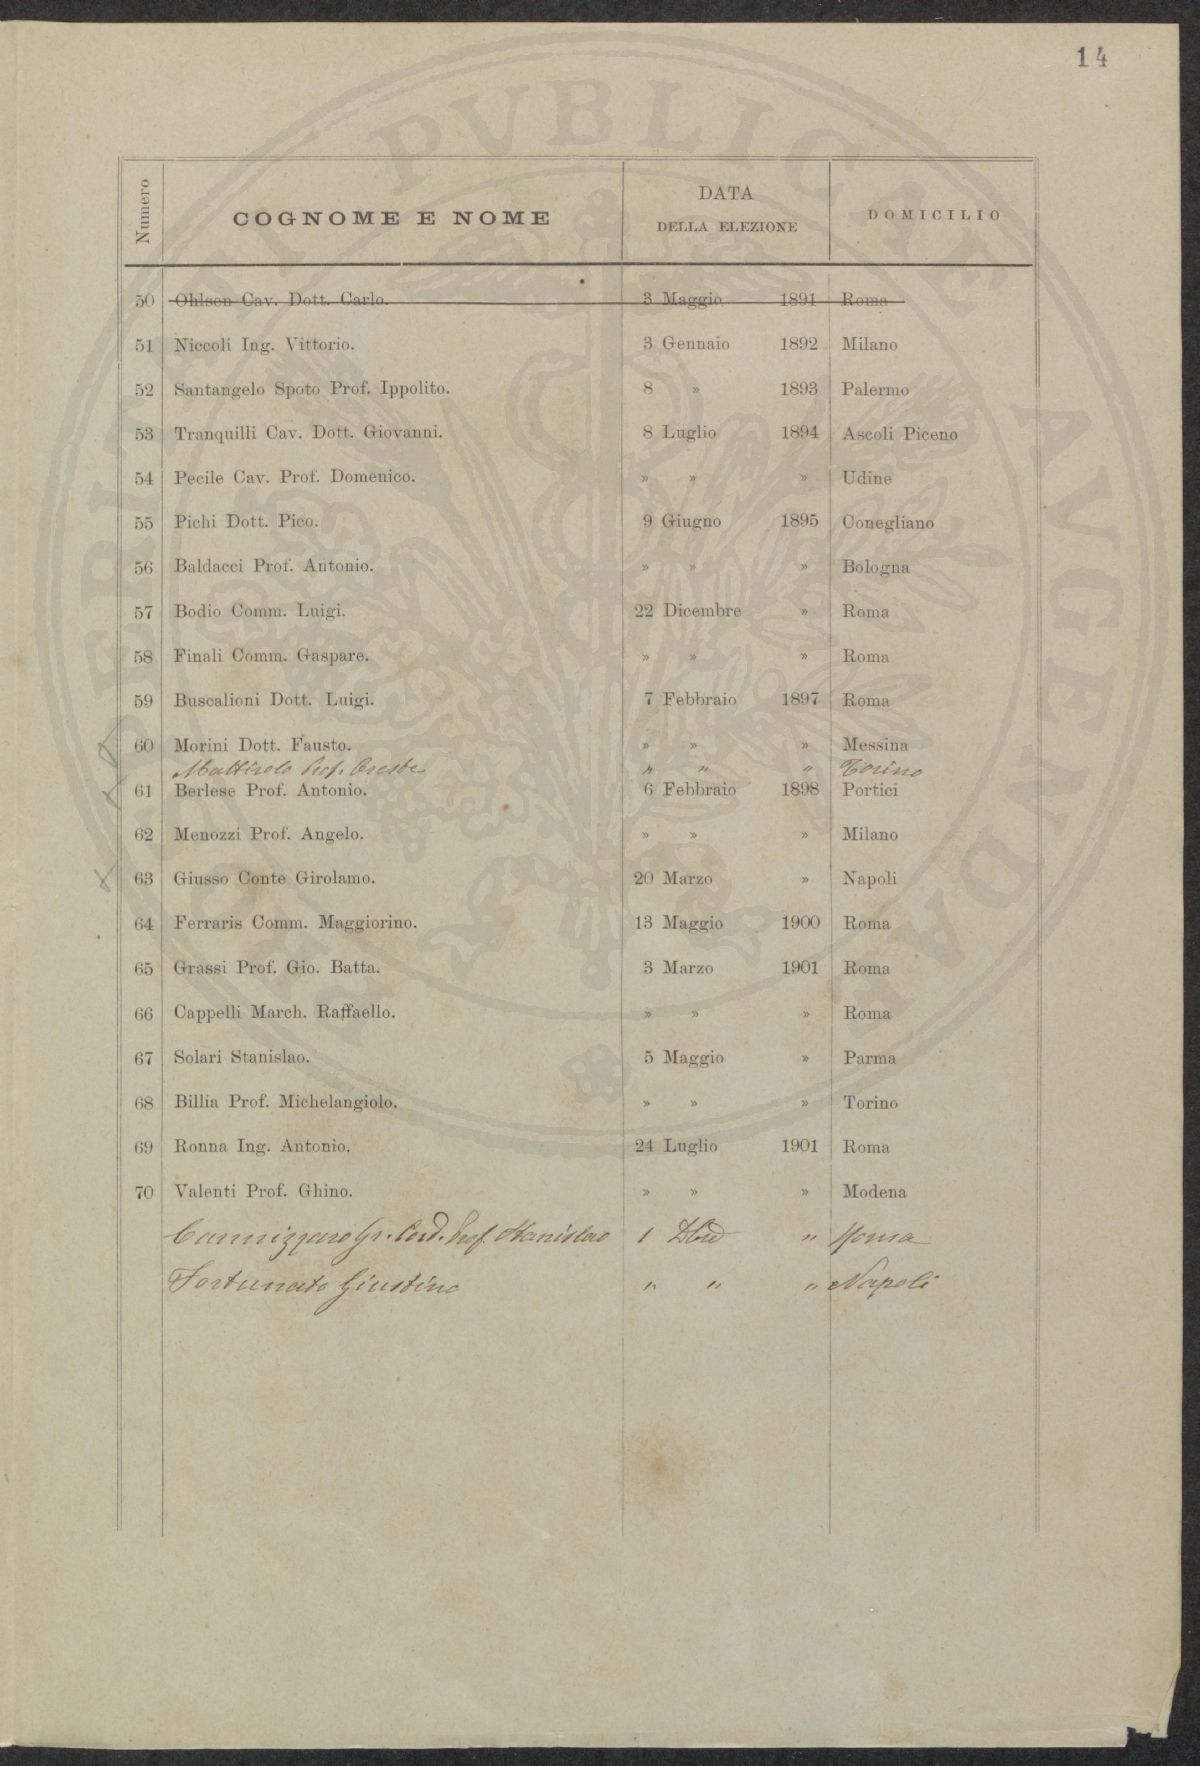 14
PVBLICAE AVGENDAE
Numero COGNOME E NOME DATA DELLA ELEZIONE DOMICILIO
50 Ohlsen Cav. Dott. Carlo. 3 Maggio 1891 Roma
51 Niccoli Ing. Vittorio. 3 Gennaio 1892 Milano
52 Santangelo Spoto Prof. Ippolito. 8 » 1893 Palermo
53 Tranquilli Cav. Dott. Giovanni. 8 Luglio 1894 Ascoli Piceno
54 Pecile Cav. Prof. Domenico. » » » Udine
55 Pichi Dott. Pico. 9 Giugno 1895 Conegliano
56 Baldacci Prof. Antonio. » » » Bologna
57 Bodio Comm. Luigi. 22 Dicembre » Roma
58 Finali Comm. Gaspare. » » » Roma
59 Buscalioni Dott. Luigi. 7 Febbraio 1897 Roma
60 Morini Dott. Fausto. » » » Messina
Mattirolo Prof. Oreste " " " Torino
61 Berlese Prof. Antonio. 6 Febbraio 1898 Portici
62 Menozzi Prof. Angelo. » » » Milano
63 Giusso Conte Girolamo. 20 Marzo » Napoli
64 Ferraris Comm. Maggiorino. 13 Maggio 1900 Roma
65 Grassi Prof. Gio. Batta. 3 Marzo 1901 Roma
66 Cappelli March. Raffaello. » » » Roma
67 Solari Stanislao. 5 Maggio » Parma
68 Billia Prof. Michelangiolo. » » » Torino
69 Ronna Ing. Antonio. 24 Luglio 1901 Roma
70 Valenti Prof. Ghino. » » » Modena
Cannizzaro Gr. Cord. Prof. Stanislao 1 " Roma
Fortunato Giustino " " " Napoli